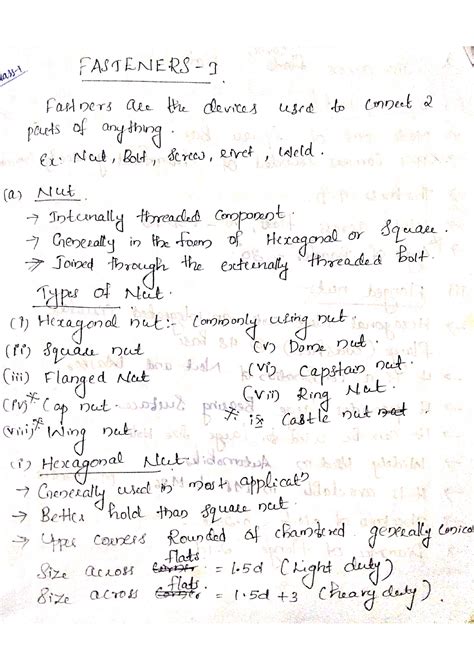 class-1
FASTENERS - I
Fastners are the devices used to connect 2
parts of anything.
Ex: Nut, Bolt, Screw, rivet, Weld.
(a) Nut
→ Internally threaded Component.
→ Generally in the form of Hexagonal or Square.
→ Joined through the externally threaded bolt.
Types of Nut.
(i) Hexagonal nut:- Commonly using nut.
(ii) Square nut (v) Dome nut.
(iii) Flanged Nut (vi) Capstan nut.
(iv) Cap nut. (vii) Ring Nut.
(viii) Wing nut ix Castle nut
(i) Hexagonal Nut:-
→ Generally used in most applicat
→ Better hold than square nut.
→ corners Rounded of chamfered generally Conical
Size across flats = 1.5d (Light duty)
Size across flats = 1.5d + 3 (heavy duty).